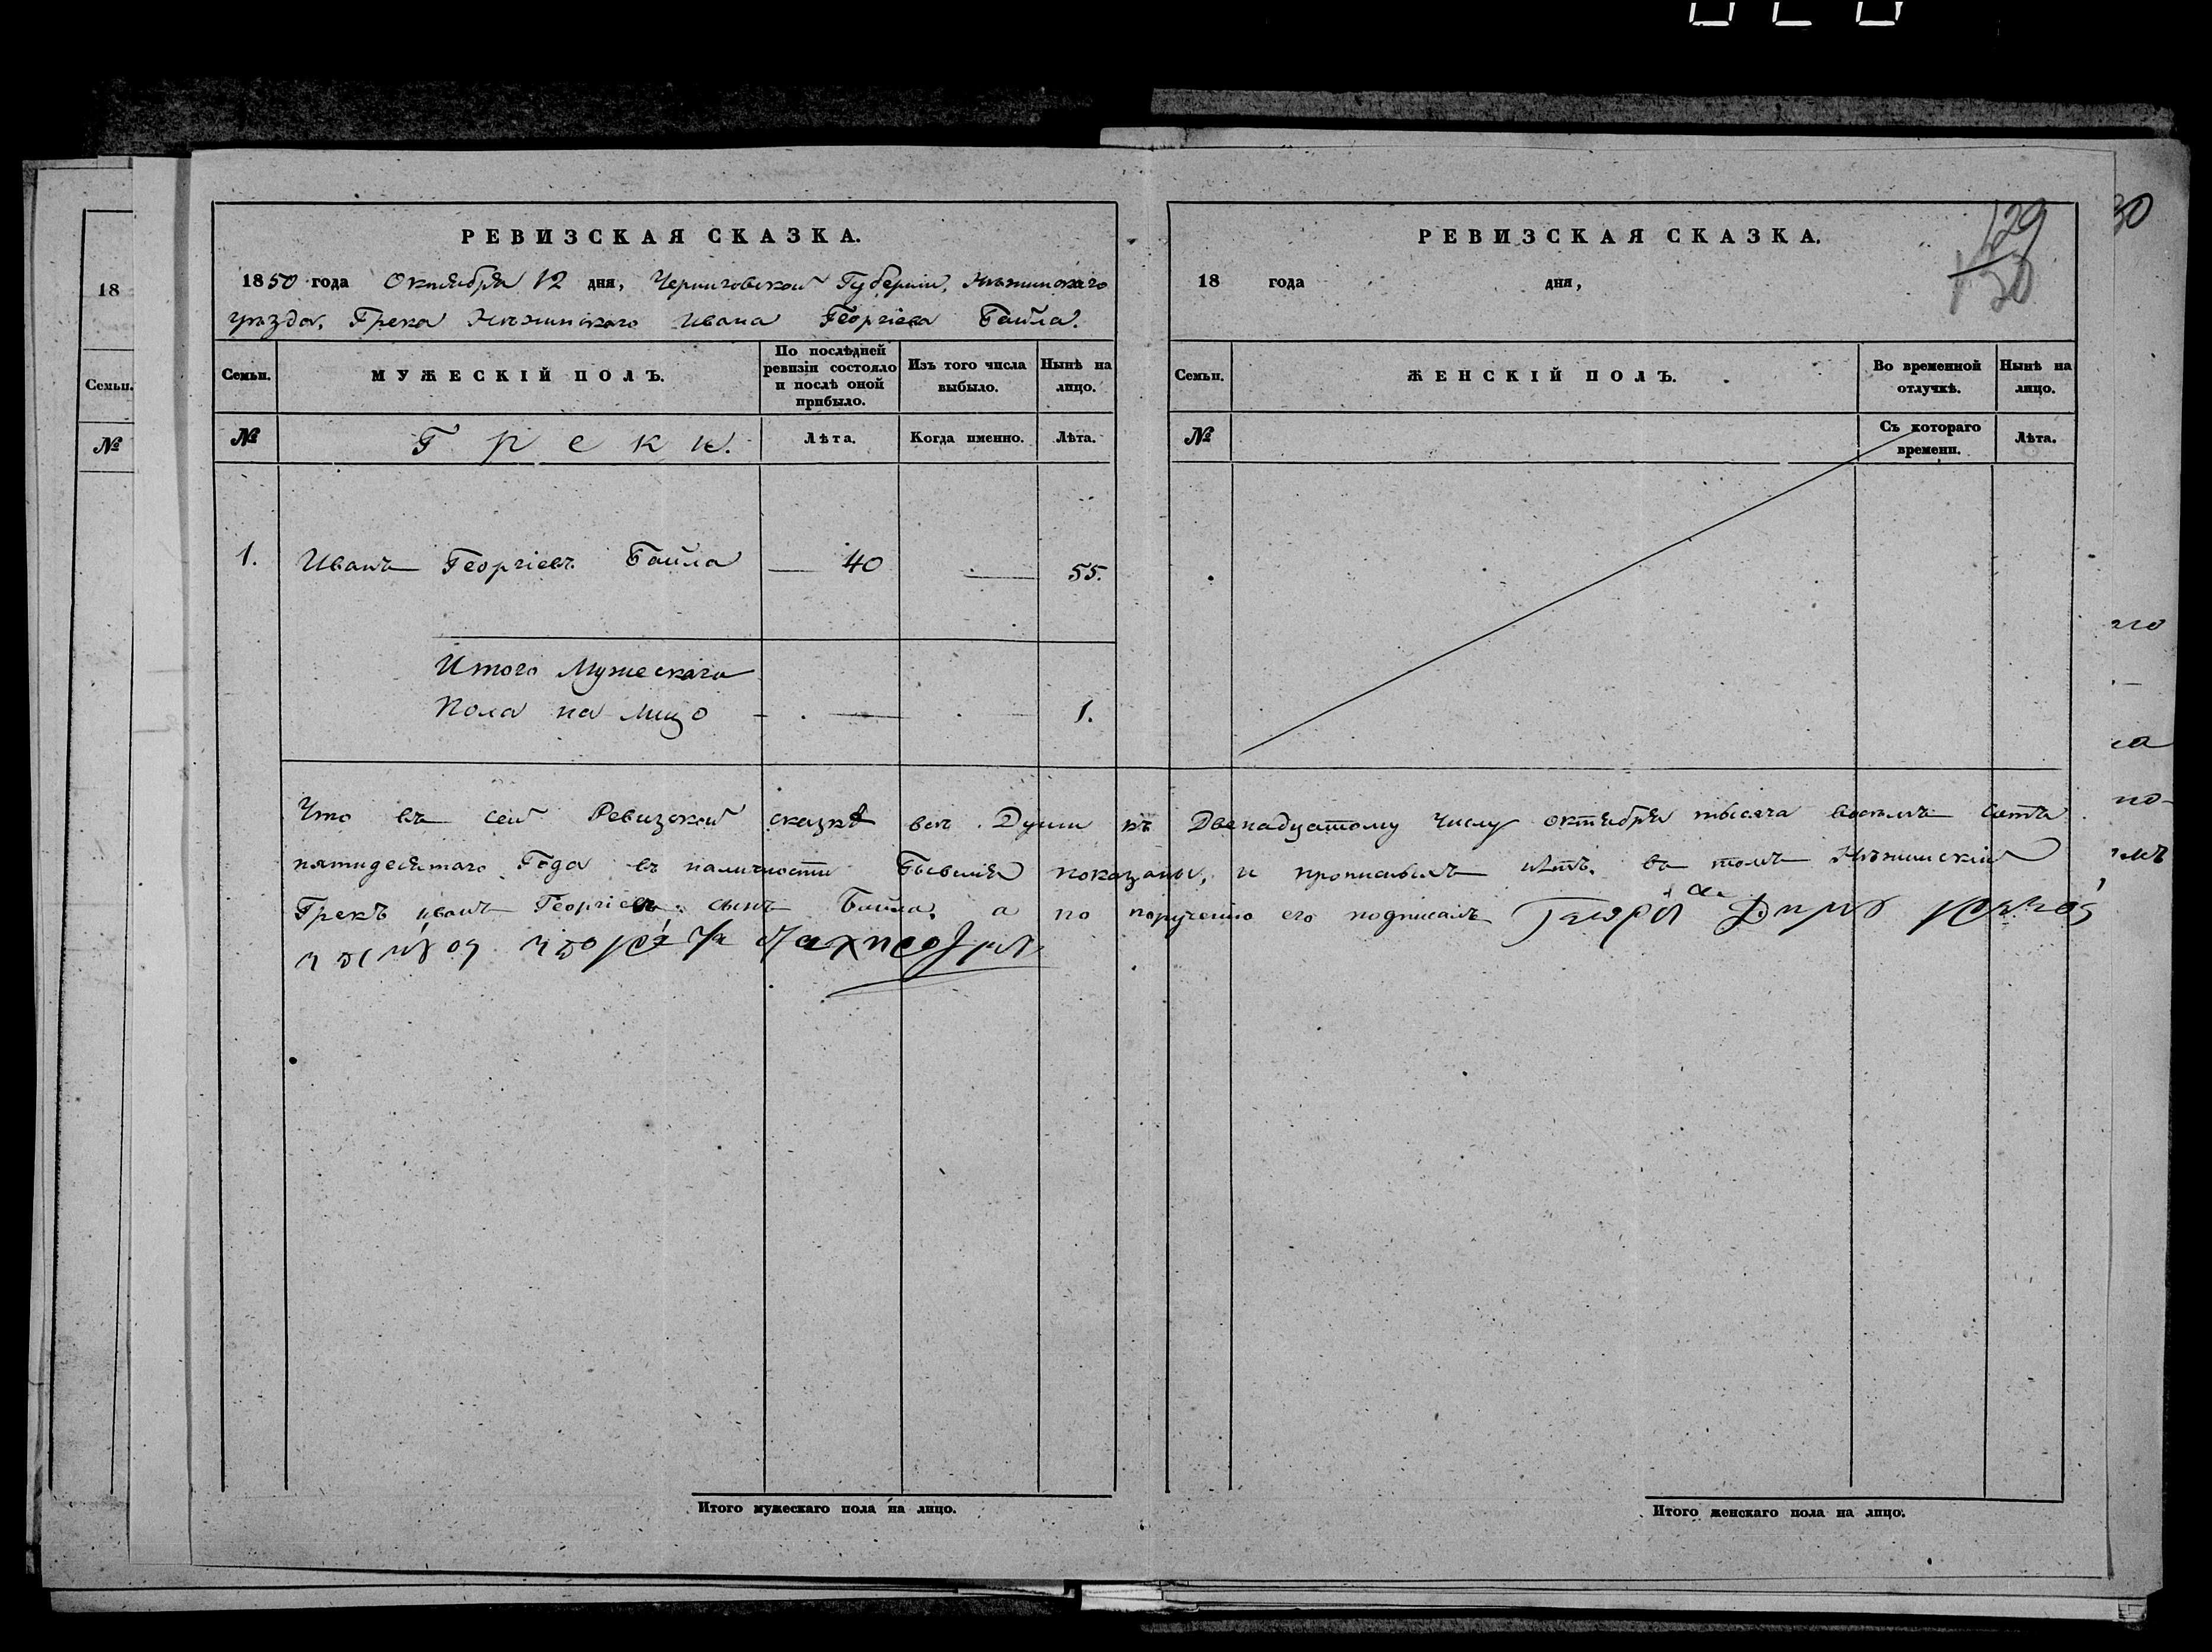 18
Семьи.
№
РЕВИЗСКАЯ СКАЗКА.
1850 года Октября 12 дня, Черниговской Губерніи, Нѣжинскаго
уѣзда, Грека Нѣжинскаго Ивана Георгіева Баила.
Семьи.
МУЖЕСКІЙ ПОЛЪ.
По послѣдней ревизіи состояло и послѣ оной прибыло.
Изъ того числа выбыло.
Нынѣ на лицо.
№
Греки.
Лѣта.
Когда именно.
Лѣта.
1. Иванъ Георгіевъ Баила 40 55.
Итого Мужескаго
Пола на лицо 1.
РЕВИЗСКАЯ СКАЗКА.
129
130
18 года дня,
Семьи.
ЖЕНСКІЙ ПОЛЪ.
Во временной отлучкѣ.
Нынѣ на лицо.
№
Съ котораго времени.
Лѣта.
Что въ сей Ревизской сказкѣ всѣ Души къ Двенадцатому числу октября тысяча восемь сотъ
пятидесятаго Года въ наличности Бывшія показаны, и прописныхъ нѣтъ. въ томъ Нѣжинскій
Грекъ иванъ Георгіевъ сынъ Баила, а по порученію его подписалъ
Итого мужескаго пола на лицо.
Итого женскаго пола на лицо.
30